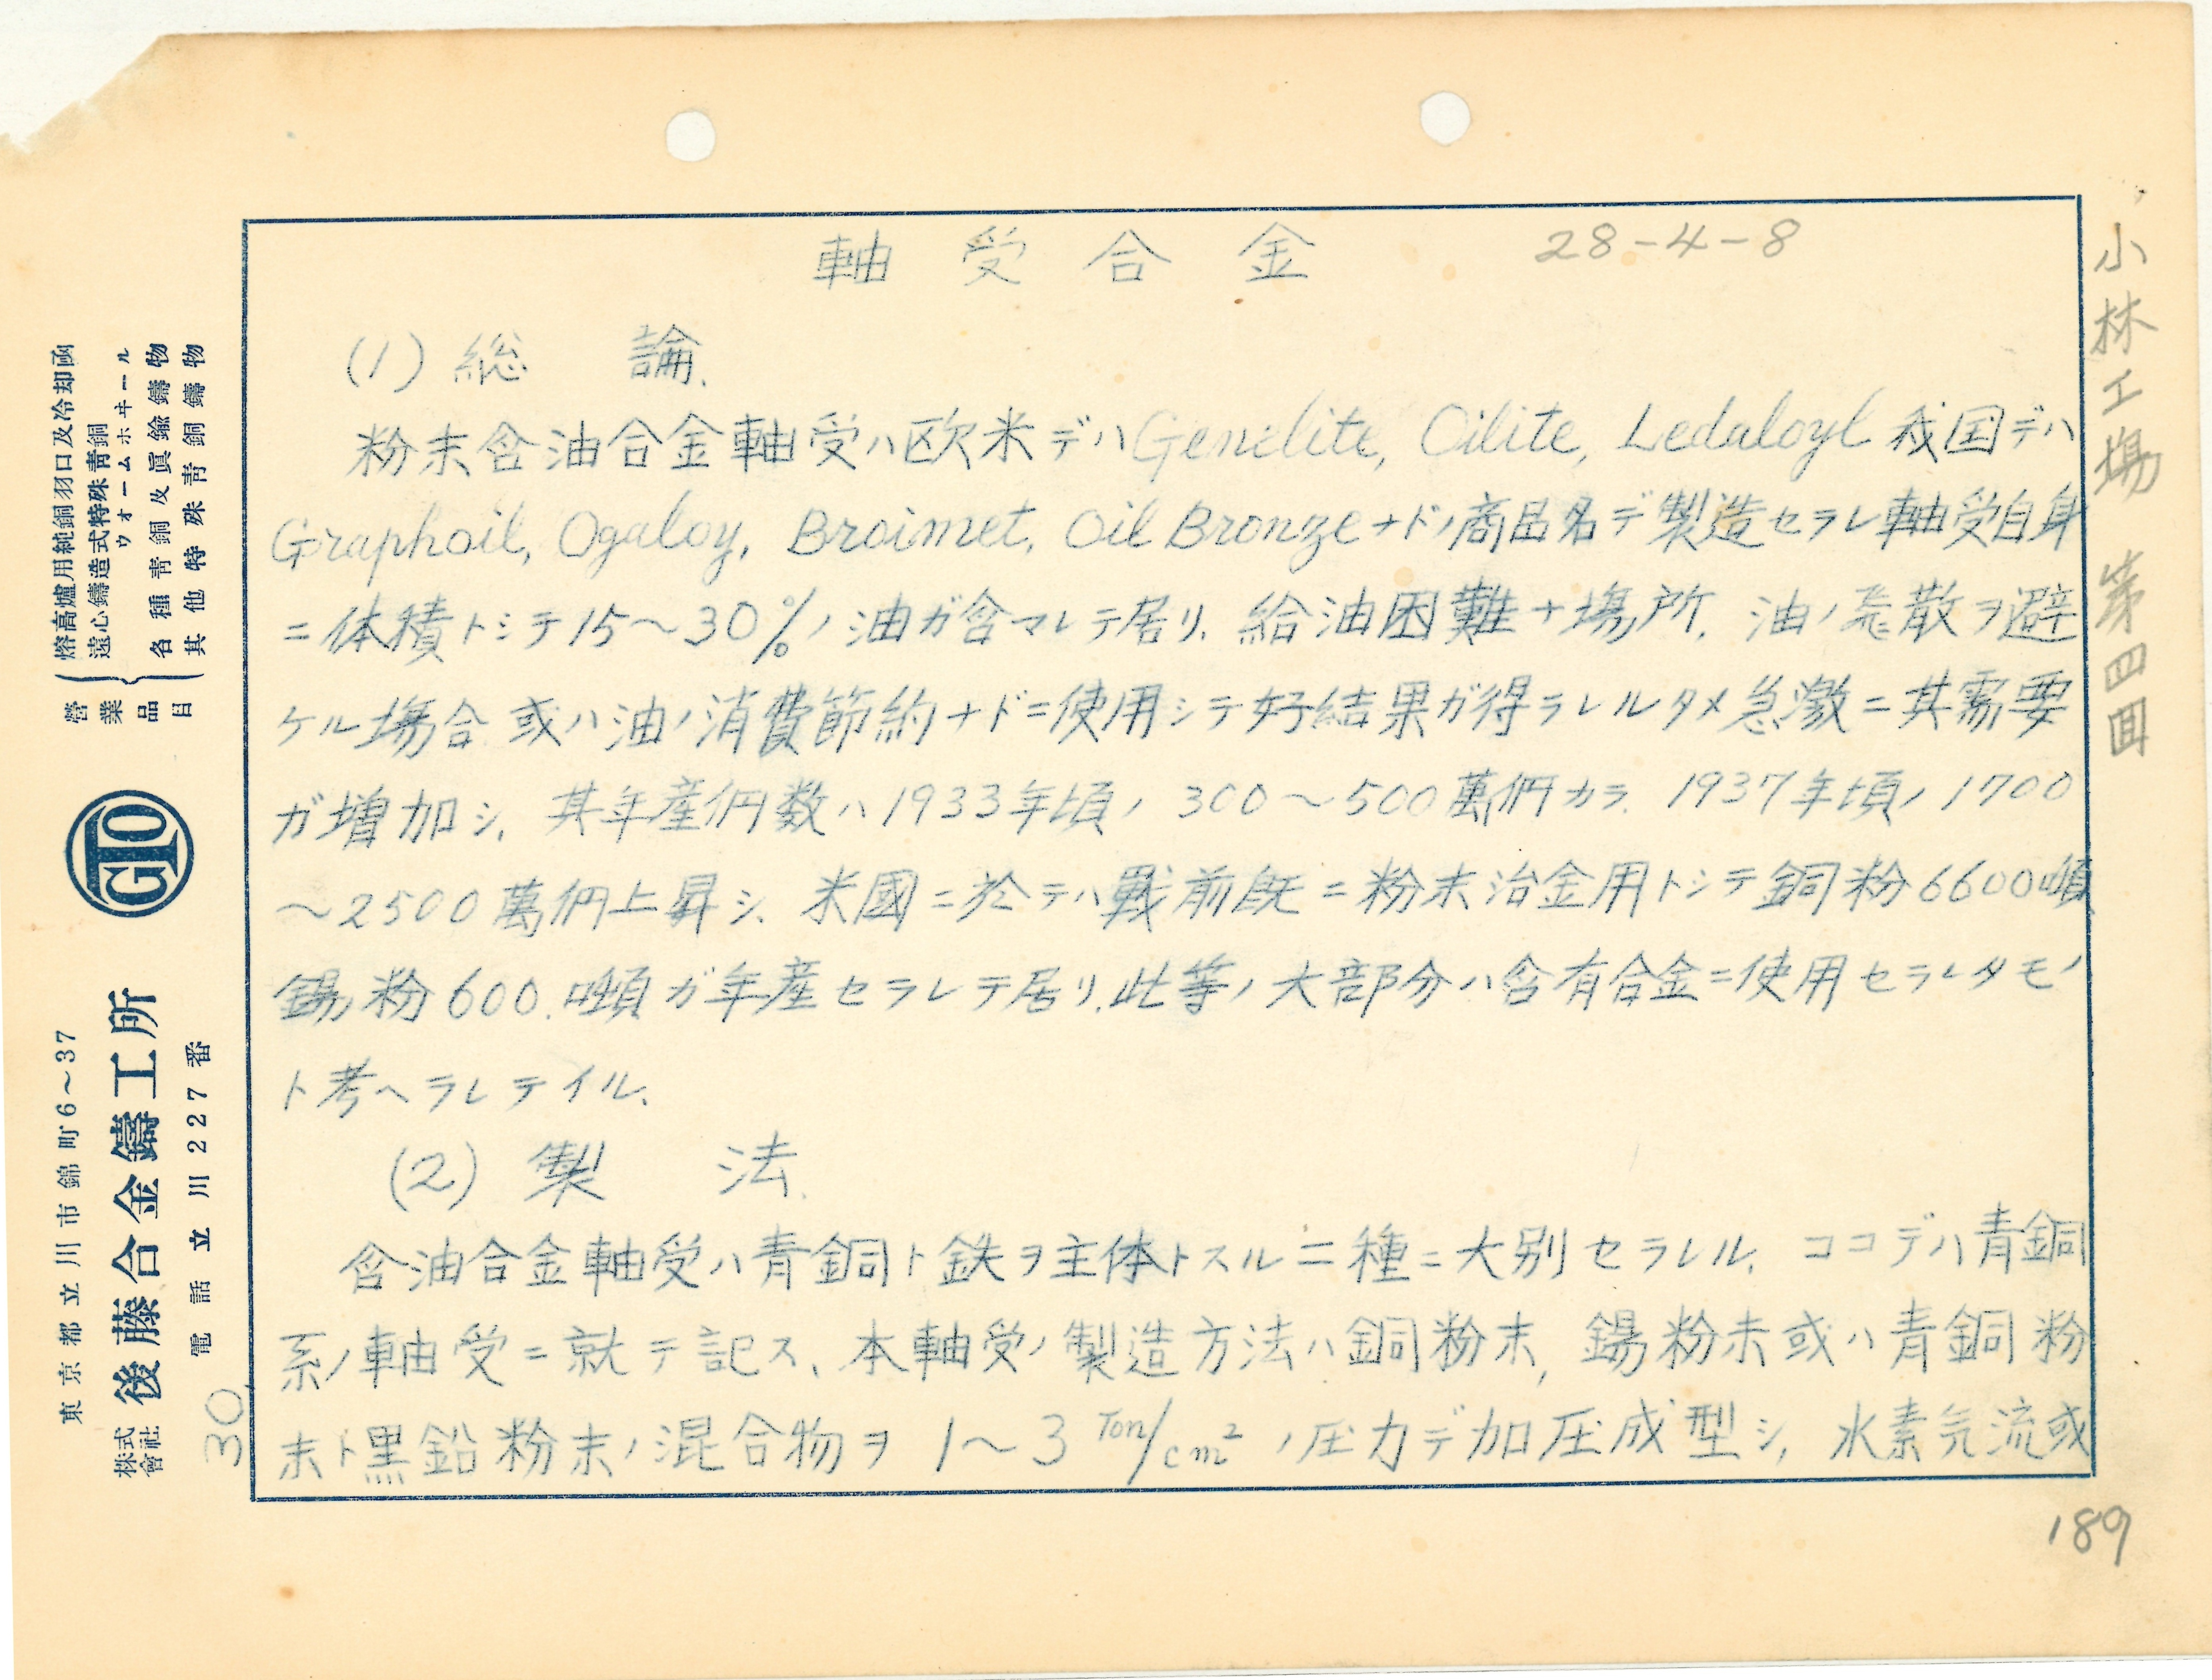 軸受合金 28-4-8
(1) 総論.
粉末含油合金軸受ハ欧米デハGenelite, Oilite, Ledaloyl 我国デハ
Graphoil, Ogaloy, Broimet, Oil Bronzeナドノ商品名デ製造セラレ軸受自身
ニ体積トシテ15～30%ノ油ガ含マレテ居リ、給油困難ナ場所、油ノ飛散ヲ避
ケル場合或ハ油ノ消費節約ナドニ使用シテ好結果ガ得ラレルタメ急激ニ其需要
ガ増加シ、其年産個数ハ1933年頃ノ300～500萬個カラ、1937年頃ノ1700
～2500萬個上昇シ、米國ニ於テハ戦前既ニ粉末冶金用トシテ銅粉6600噸
錫粉600.噸ガ年産セラレテ居リ、此等ノ大部分ハ含有合金ニ使用セラレタモノ
ト考ヘラレテイル、
(2) 製法.
含油合金軸受ハ青銅ト鉄ヲ主体トスル二種ニ大別セラレル、ココデハ青銅
系ノ軸受ニ就テ記ス、本軸受ノ製造方法ハ銅粉末, 錫粉末或ハ青銅粉
末ト黒鉛粉末ノ混合物ヲ1～3 Ton/cm²ノ圧力デ加圧成型シ、水素気流或
小林工場 第四回
189
30.
營業品目
熔高爐用純銅羽口及冷却函
遠心鑄造式特殊青銅
ウオームホヰール
各種青銅及眞鍮鑄物
其他特殊青銅鑄物
GTO
東京都立川市錦町6～37
株式會社 後藤合金鑄工所
電話立川227番